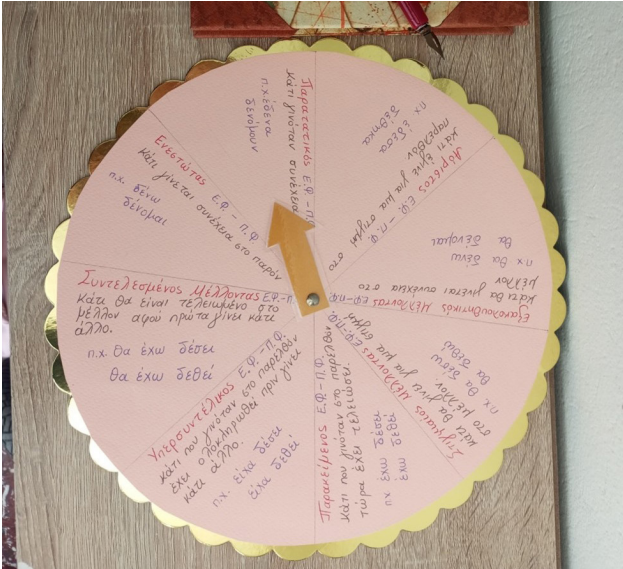 Ενεστώτας Ε.Φ - Π.Φ
κάτι γίνεται συνέχεια στο παρόν
π.χ. δένω
δένομαι
Παρατατικός Ε.Φ - Π.
κάτι γινόταν συνέχεια
π.χ έδενα
δενόμουν
Αόριστος Ε.Φ - Π.Φ.
κάτι έγινε για μια στιγμή στο
παρελθόν
πχ έδεσα
δέθηκα
Εξακολουθητικός Μέλλοντας Ε.Φ-Π.Φ.
κάτι θα γίνεται συνέχεια στο
μέλλον
πχ θα δένω
θα δένομαι
Στιγμιαίος Μέλλοντας Ε.Φ-Π.Φ.
κάτι θα γίνει για μια στιγμή
στο μέλλον
πχ. θα δέσω
θα δεθώ
Παρακείμενος Ε.Φ - Π.Φ.
κάτι που γινόταν στο παρελθόν
τώρα έχει τελειώσει.
πχ έχω δέσει
έχω δεθεί
Υπερσυντέλικος Ε.Φ. -Π.Φ.
κάτι που γινόταν στο παρελθόν
έχει ολοκληρωθεί πριν γίνει
κάτι άλλο.
π.χ. είχα δέσει
είχα δεθεί
Συντελεσμένος Μέλλοντας Ε.Φ-Π.
κάτι θα είναι τελειωμένο στο
μέλλον αφού πρώτα γίνει κάτι
άλλο.
π.χ. θα έχω δέσει
θα έχω δεθεί